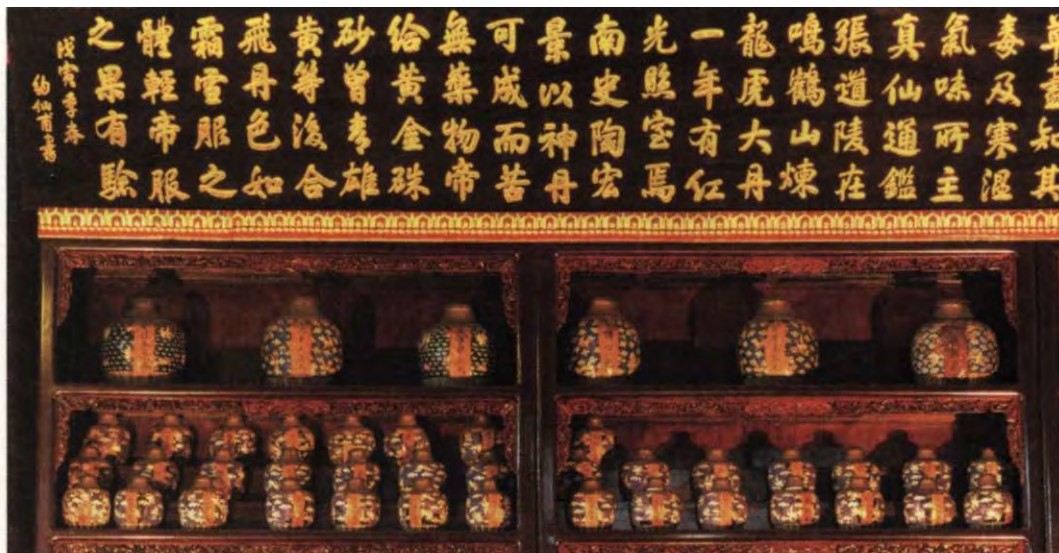 草盡知其
毒及寒溫
氣味所主
真仙通鑑
張道陵在
鳴鶴山煉
龍虎大丹
一年有紅
光照室焉
南史陶宏
景以神丹
可成而苦
無藥物帝
給黃金硃
砂曾青雄
黃等後合
飛丹色如
霜雪服之
體輕帝服
之果有驗
戊寅季春